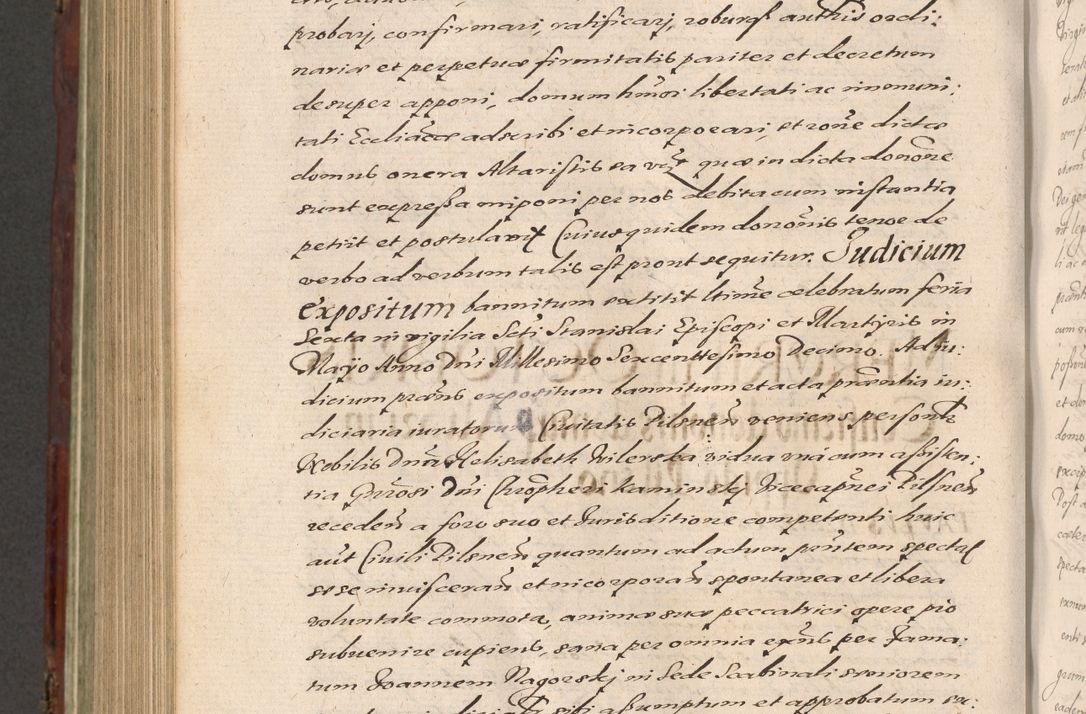 probarj, confirmari, ratificarj, roburq authtis ordi:
nariæ et perpetuæ firmitatis pariter et decretum
desuper apponi, domum hmoi libertati ac immuni:
tati Eccliacæ adscribi et incorporari, et rone dictæ
domus onera Altaristis sa quæ in dicta donone
sunt expressa imponi per nos debita cum instantia
petiit et postulavit Cuius quidem dononis tenor de
verbo ad verbum talis est prout sequitur. Judicium
expositum bannitum extitit ltime celebratum feria
Sexta in vigilia Scti Stanislai Episcopi et Martyris in
Mayo Anno Dni Millesimo Sexcenttesimo Decimo. Ad iu:
dicium præns expositum bannitum et acta præsentia iu:
diciaria iuratorum Civitatis Pilsnen veniens personlr
Nobilis Dna Helisabeth Wilerska vidua una cum assisten:
tia Gnrosi Dni Chrophori Kaminskj Vicecapnei Pilsnen
receden a foro suo et Jurisditione competenti huic
aut Civili Pilsnen quantum ad actum pntem spectat
se se invisceran et incorporan spontanea et libera
voluntate commota, animæ suæ peccatrici opere pio
subvenire cupiens, sana per omnia exns per Fama:
tum Joannem Nagorskj in Sede Scabinali seniorem
sibi assumptum et approbatum ex: